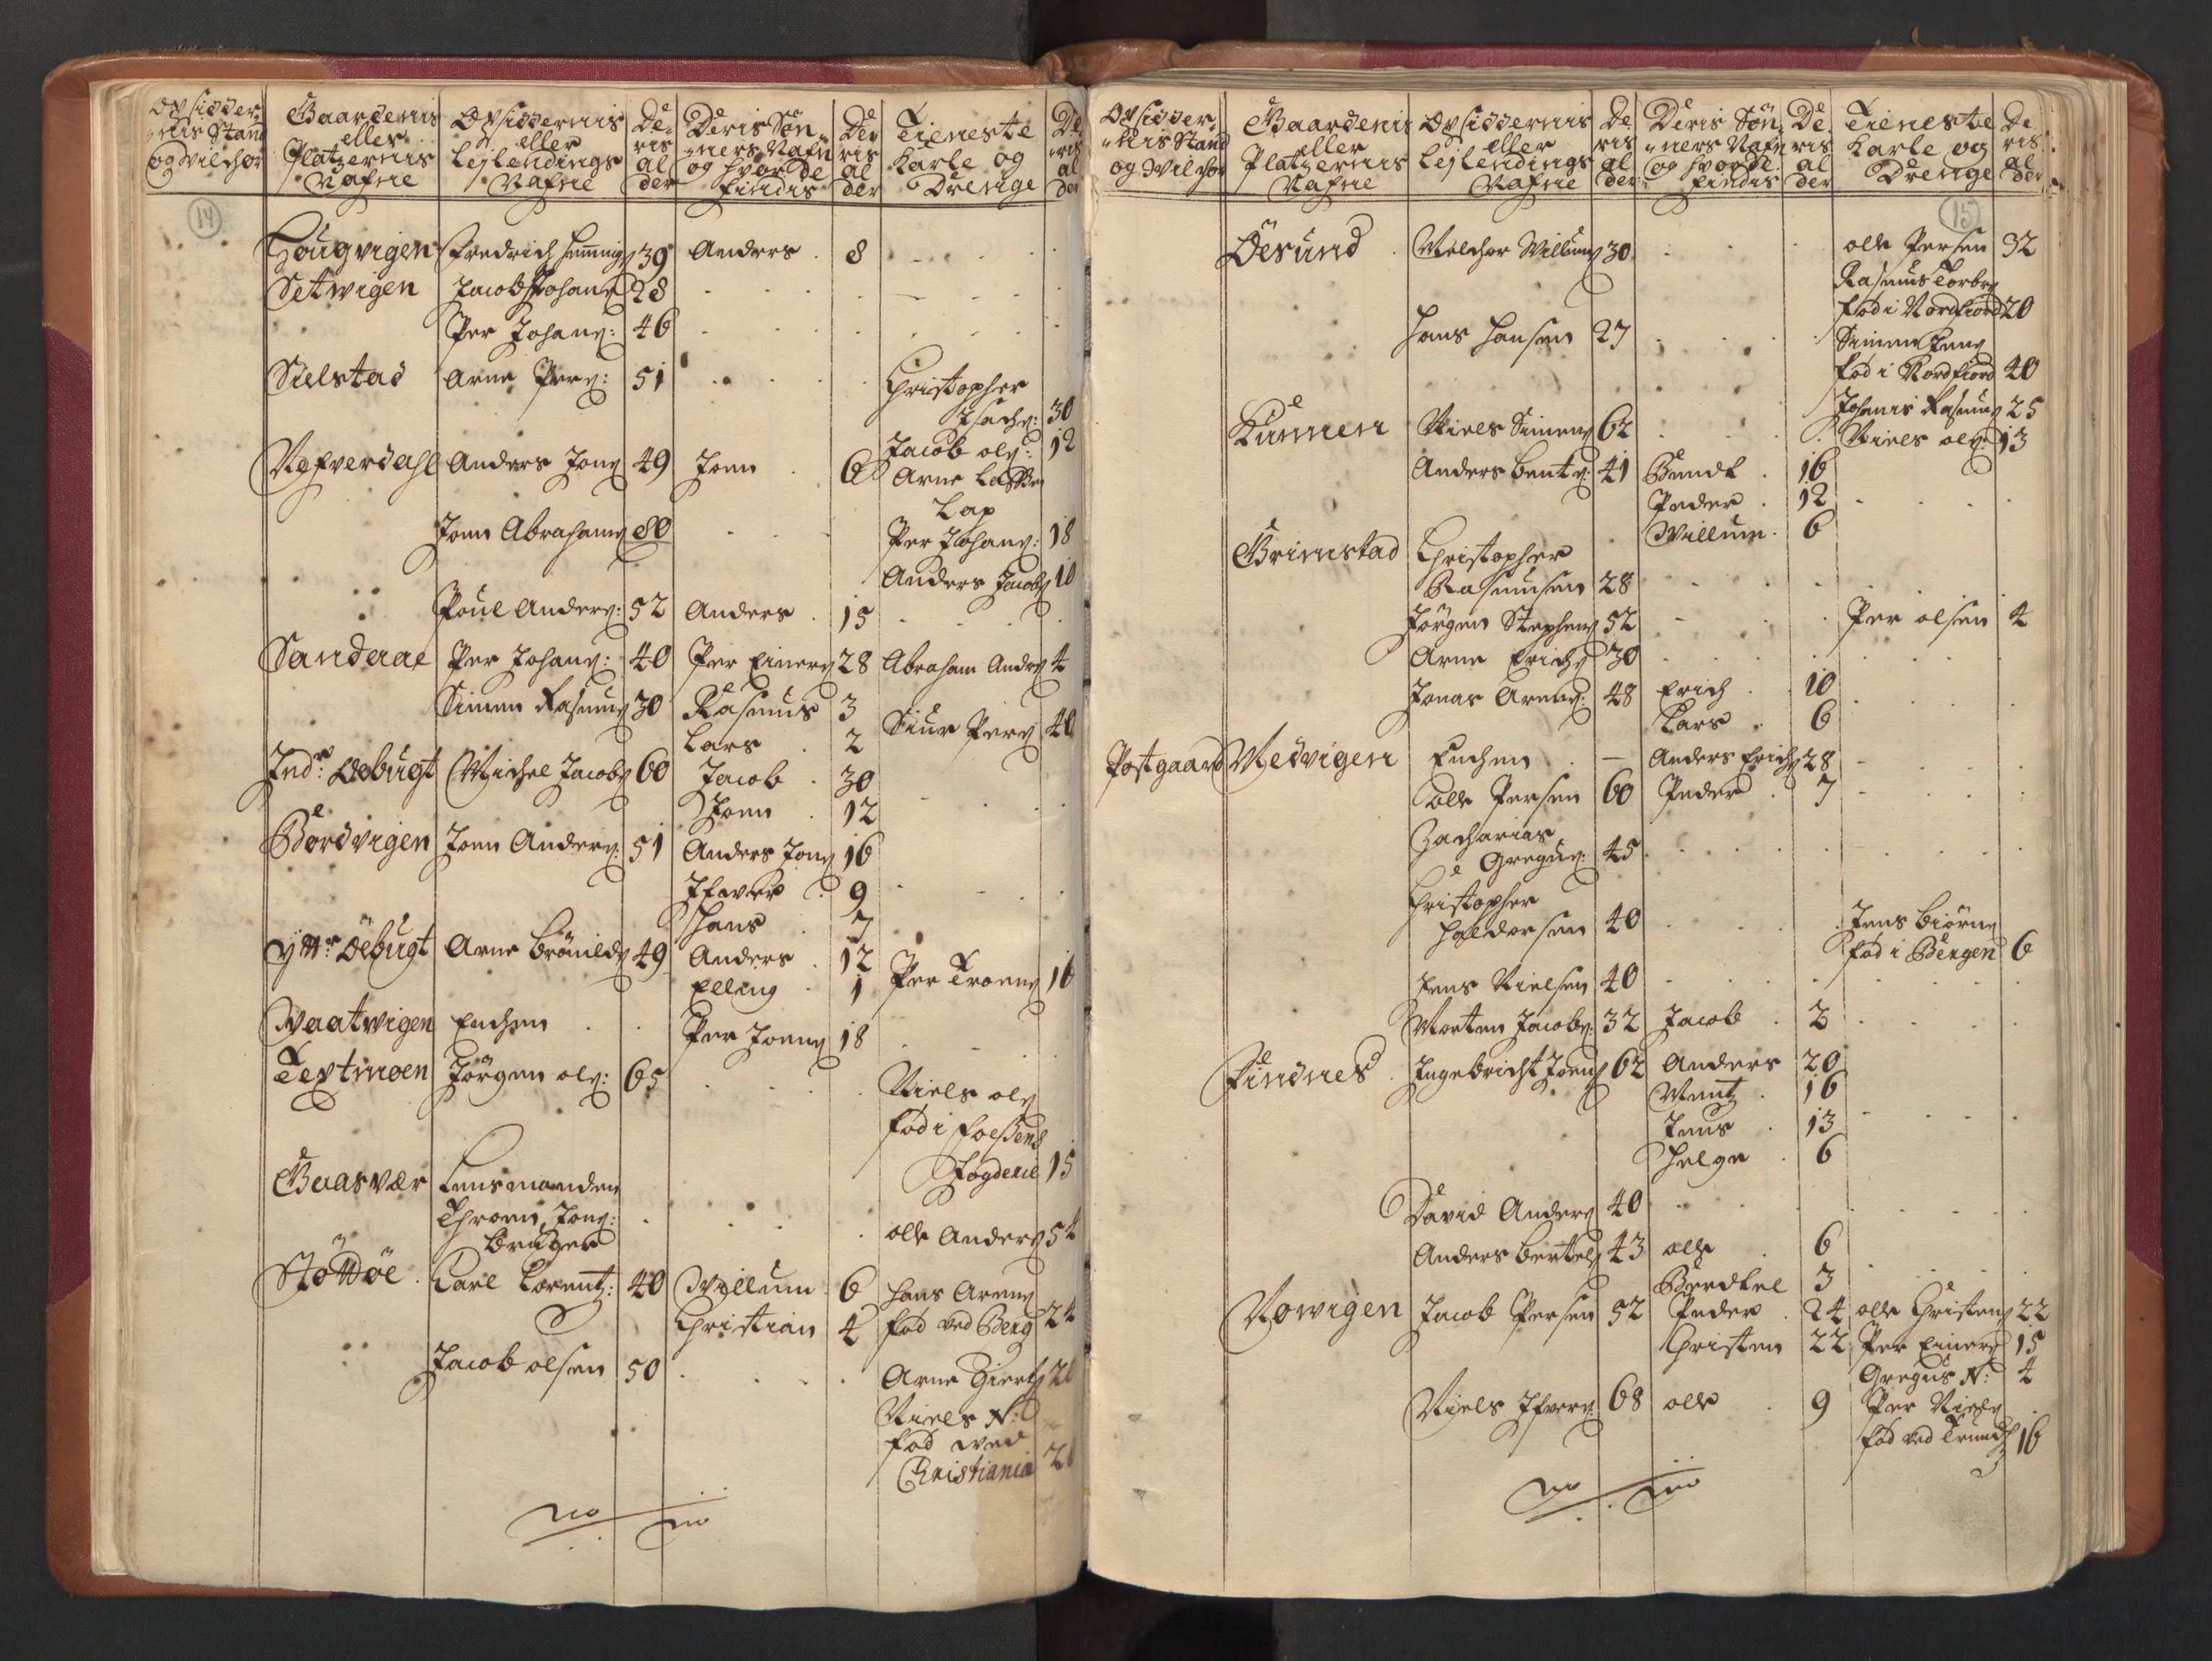 Opsidder-
nis Stand
og Vilchor
Gaardenis
eller
Platzernis
Nafne
Opsiddernis
eller
Lejlendings
Nafne
De-
ris
al
der
Deris Søn-
ners Nafn
og hvor de
findis
De
ris
al
der
Tieneste
Karle og
Drenge
De
ris
al
der
14
Hougvigen Fredrich Heming 39 Anders 8
Setwigen Jacob Johans 28
Per Johans: 46
Sielstad Arne Pers: 51 Christopher
Isachs: 30
Jacob ols: 12
Nefverdahl Anders Jons 49 Jonn 6 Arne Lassen
Lap
Jonn Abrahams 80 Per Johans: 18
Anders Jacobs 10
Poul Anders: 52 Anders 15
Sandaae Per Johans: 40 Per Einers 28 Abraham Anders 4
Simen Rasmus 30 Rasmus 3
Lars 2 Siur Pers 40
Indr: Oebugt Michel Jacobs 60 Jacob 30
Jonn 12
Bordvigen Jonn Anders: 51 Anders Jons 16
Ifwer 9
Hans 7
Yttr Öebugt Arne Brönilds 49 Anders 12
Elling 1 Per Troens 16
Waatwigen Enchen Per Jonns 18
Textmoen Jörgen ols: 65 Niels ols
fød i Foessens
fogderie 15
Gaasvær Lensmanden
Throen Jons:
bruger olle Anders 54
Støttøe Carl Lorentz: 40 Willum 6 Hans Arens
Christian 4 fød ved Berg 24
Jacob olsen 50 Arne Zierts 20
Niels N:
fød wed
Christiania 20
Opsidder-
nis Stand
og Vilchor
Gaardenis
eller
Platzernis
Nafne
Opsiddernis
eller
Lejlendings
Nafne
De
ris
al
der
Deris Søn-
ners Nafn
og hvor de
findis
De
ris
al
der
Tieneste
Karle og
Drenge
De
ris
al
der
15
Öesund Melchor Willums 30 olle Persen 32
Rasmus Torbes
fød i Nordfiord 20
Hans Hansen 27 Simen Jens
fød i Nordfiord 40
Johanis Rasmus 25
Kunnen Niels Simens 62 Niels ols: 13
Anders Bents: 41 Bendt 16
Peder 12
Willum 6
Grimstad Christopher
Rasmusen 28
Jörgen Stephens 52 Per olsen 4
Arne Erichs 30
Jonas Arens: 48 Erich 10
Lars 6
Postgaard Medvigen Enchen Anders Erichs 28
olle Persen 60 Peder 7
Zacharias
Gregus: 45
Christopher
Haldorsen 40 Jens Biörns
fød i Bergen 6
Jens Nielsen 40
Morten Jacobs: 32 Jacob 2
Findnes Ingebricht Joens 62 Anders 20
Mentz 16
Jens 13
Helge 6
David Anders 40
Anders Bertels 43 olle 6
Berdtel 3
Nowigen Jacob Persen 52 Peder 24 olle Christens 22
Christen 22 Per Einers 15
Gregus N: 4
Niels Ifvers: 68 olle 9 Per Niels
fød ved Trundh 16